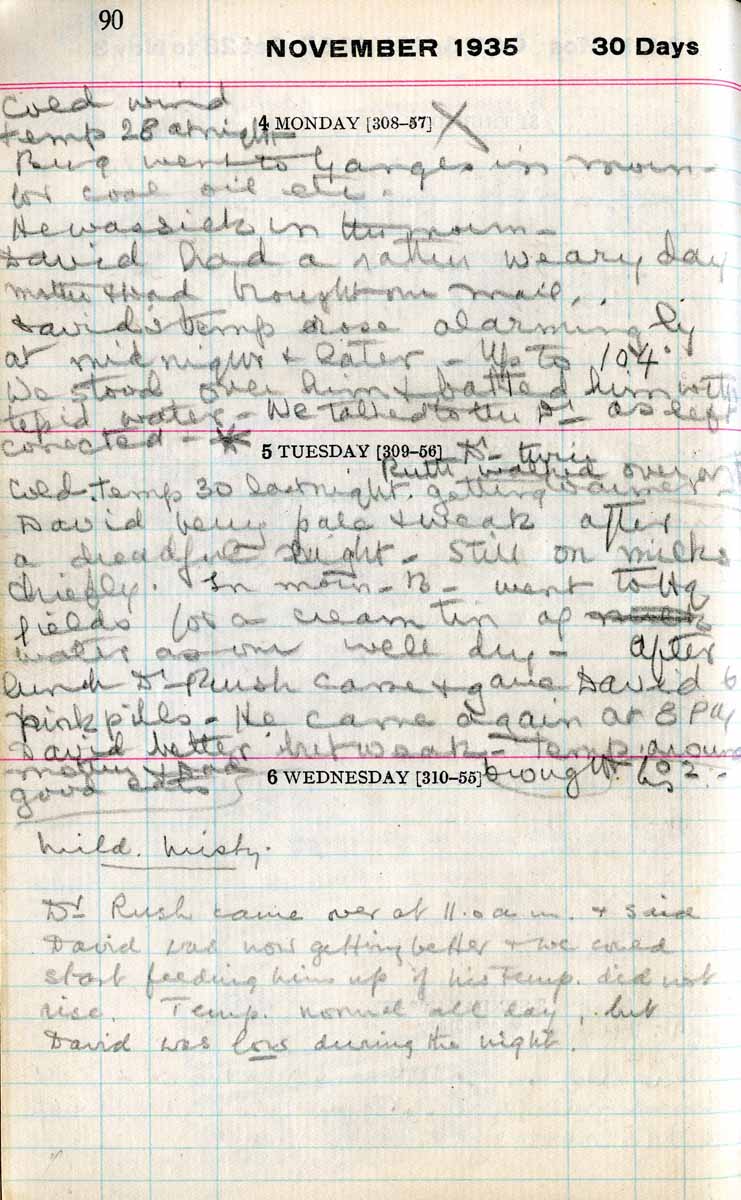 90
NOVEMBER 1935 30 Days
Cold wind
4 MONDAY [308–57] X
temp 28 at night
went to Ganges in morn-
for coal oil etc.
He was sick in the morn-
David had a rather weary day
Mother & Dad brought our mail.
David's temp rose alarmingly
at midnight & later - Up to 104°
We stood over him & batted him with
tepid water - We talked to the Dr as left
conected -
5 TUESDAY [309–56] Dr twice
Ruth walked over
Cold. temp 30 last night. getting warmer -
David very pale & weak after
a dreadful night - Still on milks
chiefly. In morn - B - went to Hq
fields for a cream tin of milk
water as our well dry - After
lunch Dr Rush came & gave David 6
pink pills - He came again at 8 PM
David better but weak - Temp. around
6 WEDNESDAY [310–55] brought
Mother & Dad
good eats
Mild. Misty.
Dr Rush came over at 11.0 a.m. & said
David was now getting better & we could
start feeding him up if his Temp. did not
rise. Temp. normal all day, but
David was low during the night.